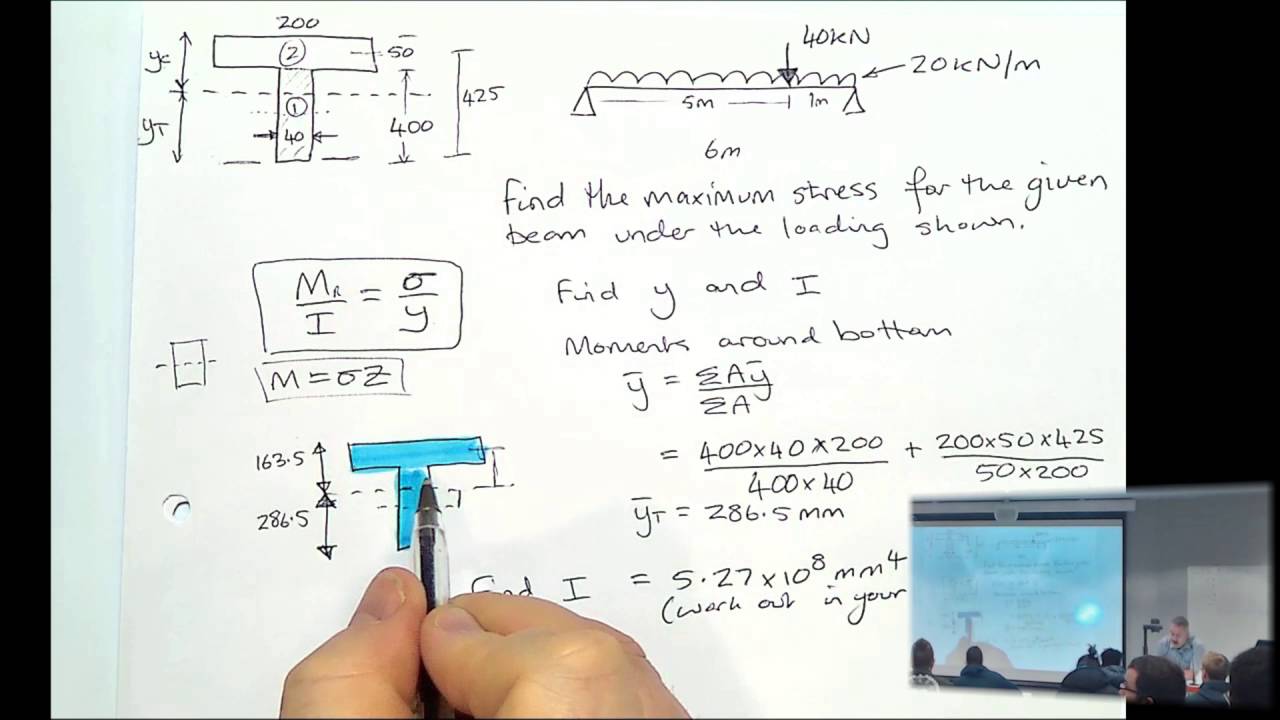 200
② 50
yc
425
①
yT 40 400
40KN
20KN/m
5m 1m
6m
Find the maximum stress for the given
beam under the loading shown.
MR/I = σ/y
M = σZ
Find y and I
Moments around bottom
ȳ = ΣAȳ/ΣA
= 400x40x200/400x40 + 200x50x425/50x200
ȳT = 286.5mm
163.5
286.5
Find I = 5.27x10⁸ mm⁴
(work out in your